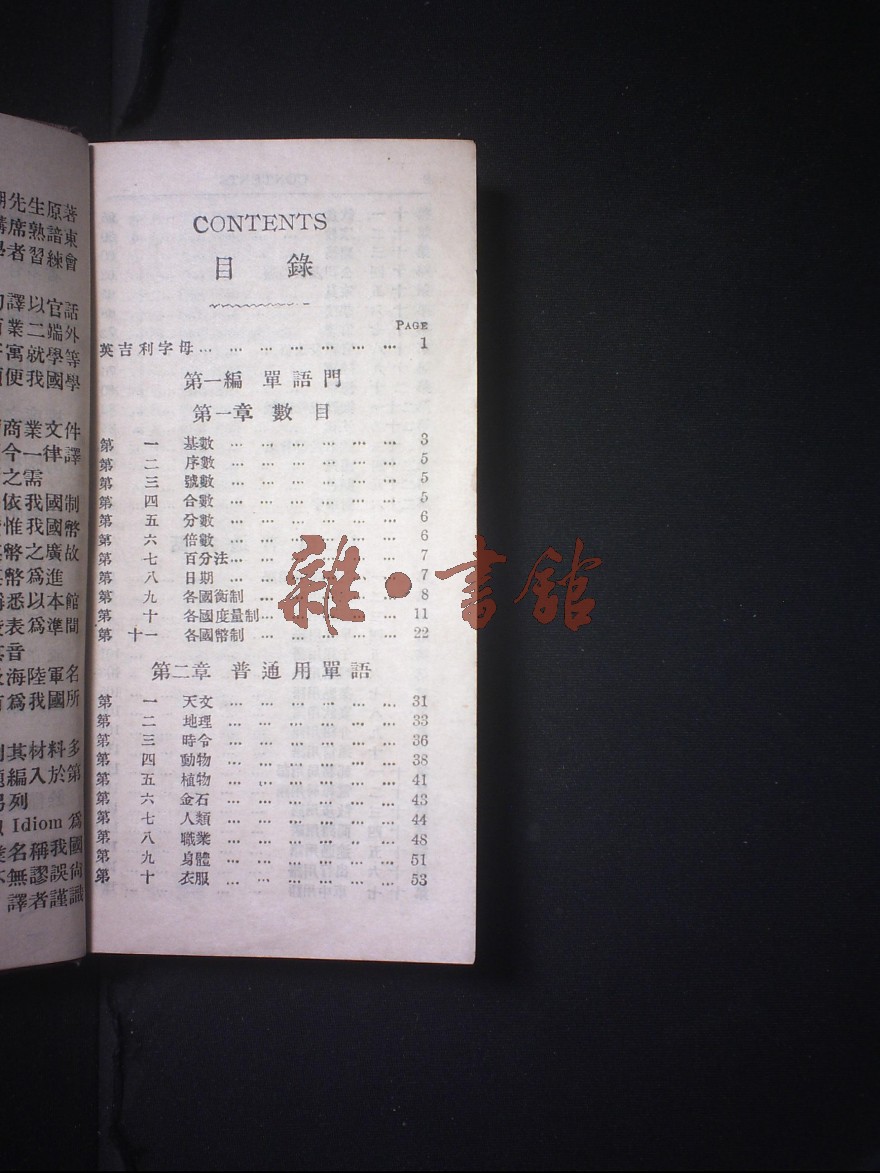 CONTENTS
目錄
PAGE
英吉利字母... ... ... ... ... ... ... 1
第一編 單語門
第一章 數目
第一 基數 ... ... ... ... ... ... 3
第二 序數 ... ... ... ... ... ... 5
第三 號數 ... ... ... ... ... ... 5
第四 合數 ... ... ... ... ... ... 5
第五 分數 ... ... ... ... ... ... 6
第六 倍數 ... ... ... ... ... ... 6
第七 百分法... ... ... ... ... ... 7
第八 日期 ... ... ... ... ... ... 7
第九 各國衡制 ... ... ... ... ... 8
第十 各國度量制... ... ... ... ... 11
第十一 各國幣制... ... ... ... ... 22
第二章 普通用單語
第一 天文 ... ... ... ... ... ... 31
第二 地理 ... ... ... ... ... ... 33
第三 時令 ... ... ... ... ... ... 36
第四 動物 ... ... ... ... ... ... 38
第五 植物 ... ... ... ... ... ... 41
第六 金石 ... ... ... ... ... ... 43
第七 人類 ... ... ... ... ... ... 44
第八 職業 ... ... ... ... ... ... 48
第九 身體 ... ... ... ... ... ... 51
第十 衣服 ... ... ... ... ... ... 53
先生原著
席熟諳東
者習練會
譯以官話
業二端外
寓就學等
便我國學
商業文件
今一律譯
之需
依我國制
惟我國幣
幣之廣故
幣爲進
悉以本館
表爲準間
音
海陸軍名
爲我國所
其材料多
編入於第
列
Idiom 爲
名稱我國
無謬誤尙
譯者謹識
雜·書館